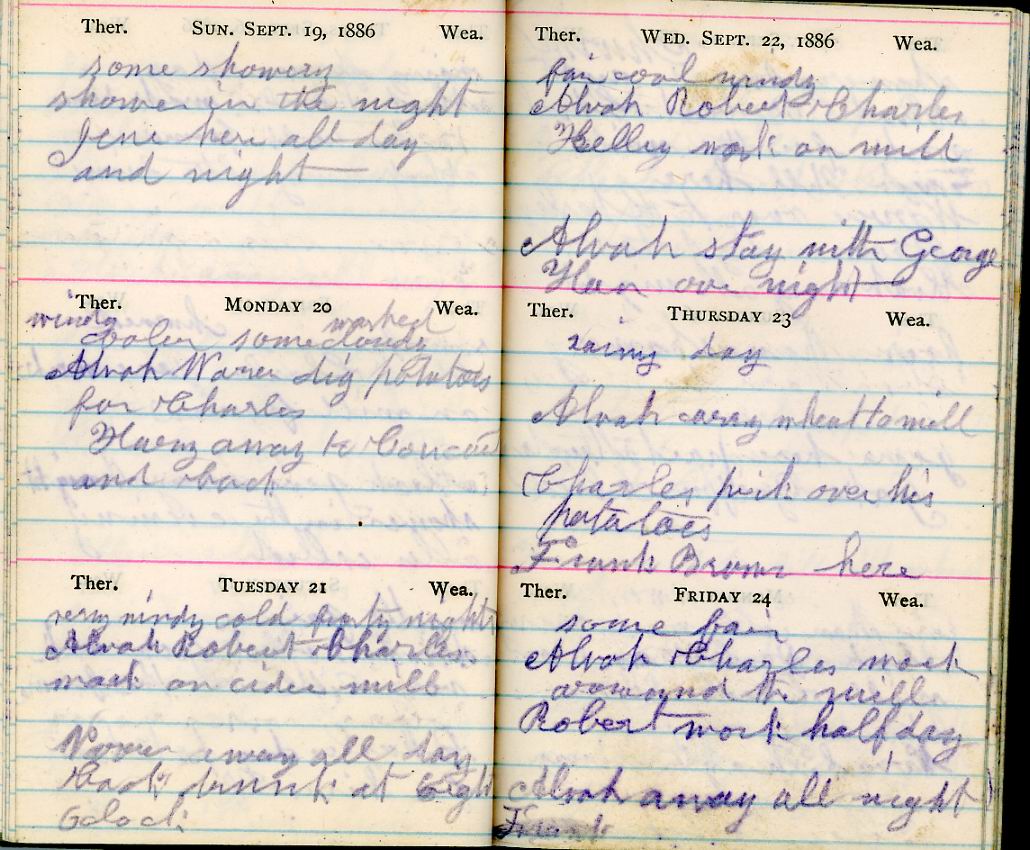 Ther. SUN. SEPT. 19, 1886 Wea.
some showery
shower in the night
Jene here all day
and night
Ther. MONDAY 20 Wea.
windy washed
cooler some cloudy
Alvah Waren dig potatoes
for Charles
away to
and back
Ther. TUESDAY 21 Wea.
very windy cold frosty nights
Alvah Robert Charles
work on cider mill
away all day
Back drunk at Eight
Oclock
Ther. WED. SEPT. 22, 1886 Wea.
fair cool windy
Alvah Robert Charles
Kelley work on mill
Alvah stay with George
over night
Ther. THURSDAY 23 Wea.
rainy day
Alvah carry wheat to mill
Charles pick over his
potatoes
Frank Brown here
Ther. FRIDAY 24 Wea.
some fair
Alvah Charles work
arowound the mill
Robert work half day
Alvah away all night
Frank